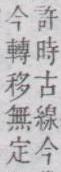 許時古線今
今轉移無定